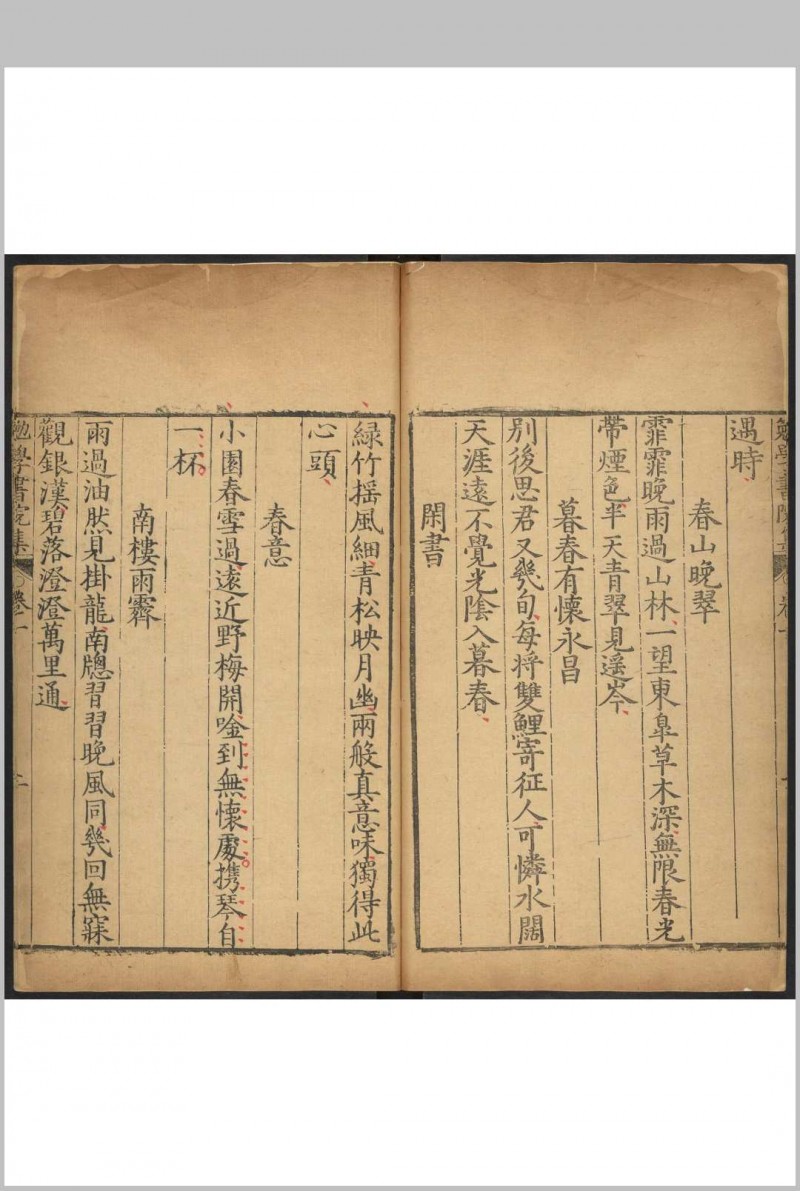 遇時
春山晚翠
霏霏晚雨過山林一望東皋草木深無限春光
帶煙色半天青翠見遥岑
暮春有懷永昌
別後思君又幾旬每將雙鯉寄征人可憐水闊
天涯遠不覺光陰入暮春
閑書
綠竹揺風細青松映月幽兩般真意味獨得此
心頭
春意
小園春雪過遠近野梅開唫到無懷處携琴自
一杯
南樓雨霽
雨過油然見掛龍南牕習習晚風同幾回無寐
觀銀漢碧落澄澄萬里通
勉學書院集 卷一